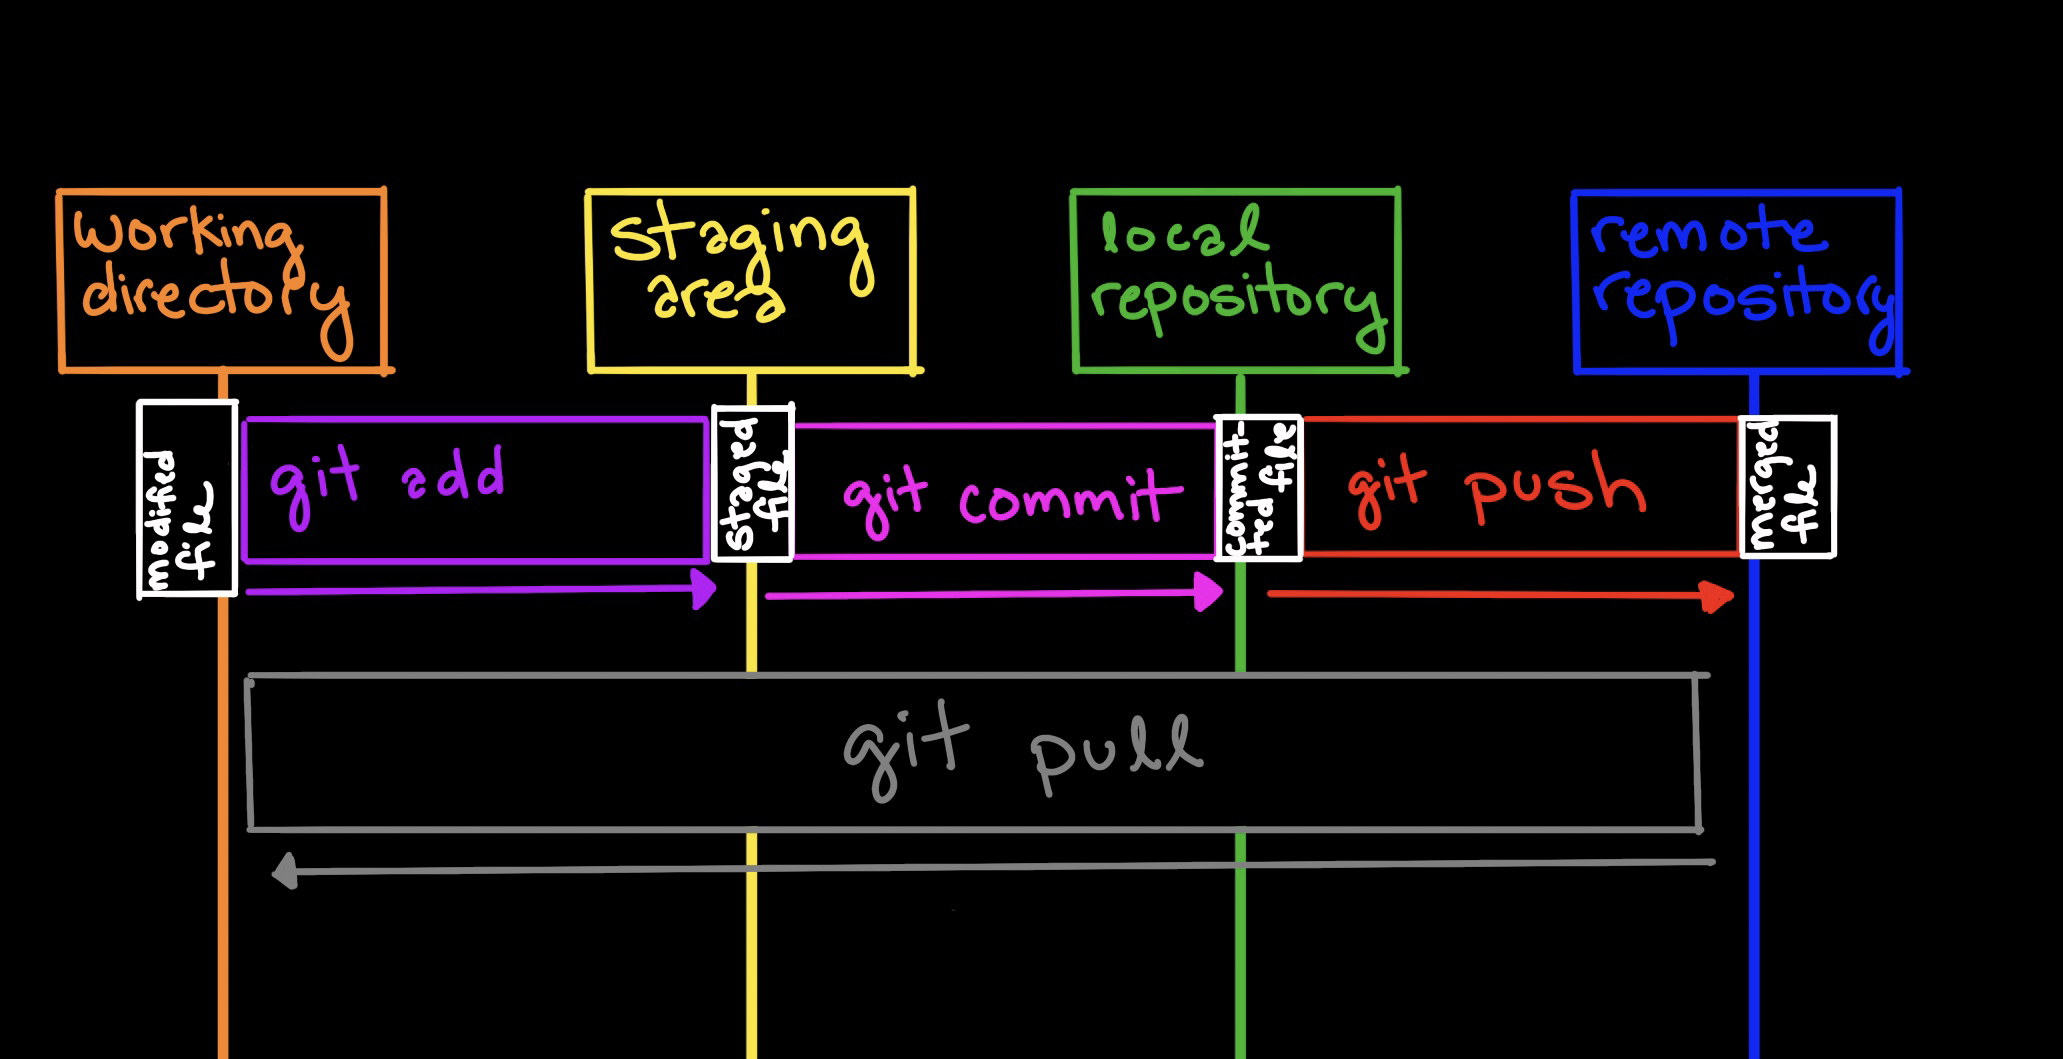 working
directory
staging
area
local
repository
remote
repository
modified
file
git add
staged
file
git commit
commit-
ted file
git push
merged
file
git pull